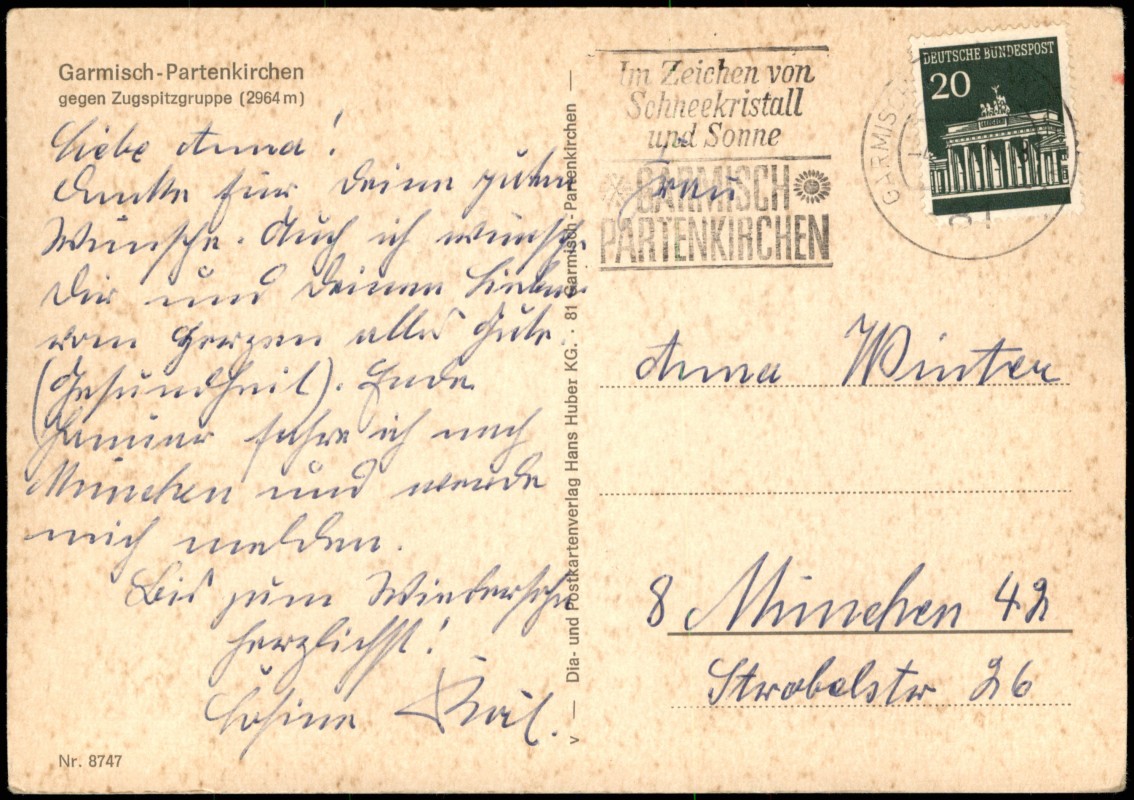 Garmisch-Partenkirchen
gegen Zugspitzgruppe (2964 m)
Liebe Anna!
Danke für Deine guten
Wünsche. Auch ich wünsche
Dir und Deinen Lieben
vom Herzen alles Gute
(Gesundheit). Ende
Januar fahre ich nach
München und werde
mich melden.
Bis zum Wiedersehn
herzlichst!
Nr. 8747
v — Dia- und Postkartenverlag Hans Huber KG. · 81 Garmisch-Partenkirchen —
Im Zeichen von
Schneekristall
und Sonne
GARMISCH
PARTENKIRCHEN
GARMISCH
81
DEUTSCHE BUNDESPOST
20
Frau
Anna Winter
8 München 42
Strobelstr 26